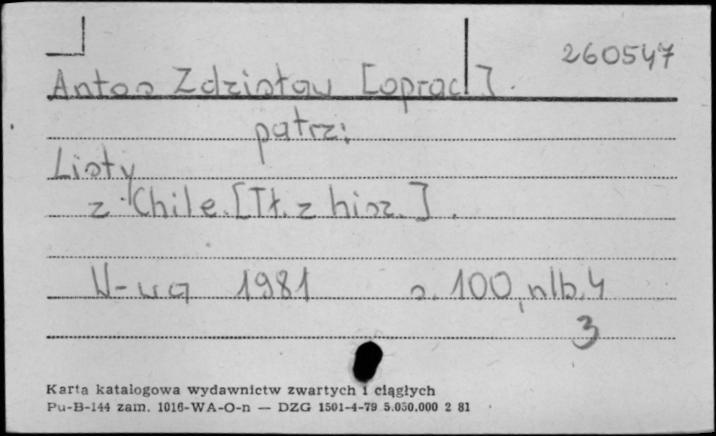 260547
Antos Zdzisław [oprac].
patrz:
Listy
z Chile. [Tł. z hisz.].
W-wa 1981 s. 100, nlb. 4
3
Karta katalogowa wydawnictw zwartych i ciągłych
Pu-B-144 zam. 1016-WA-O-n — DZG 1501-4-79 5.050.000 2 81